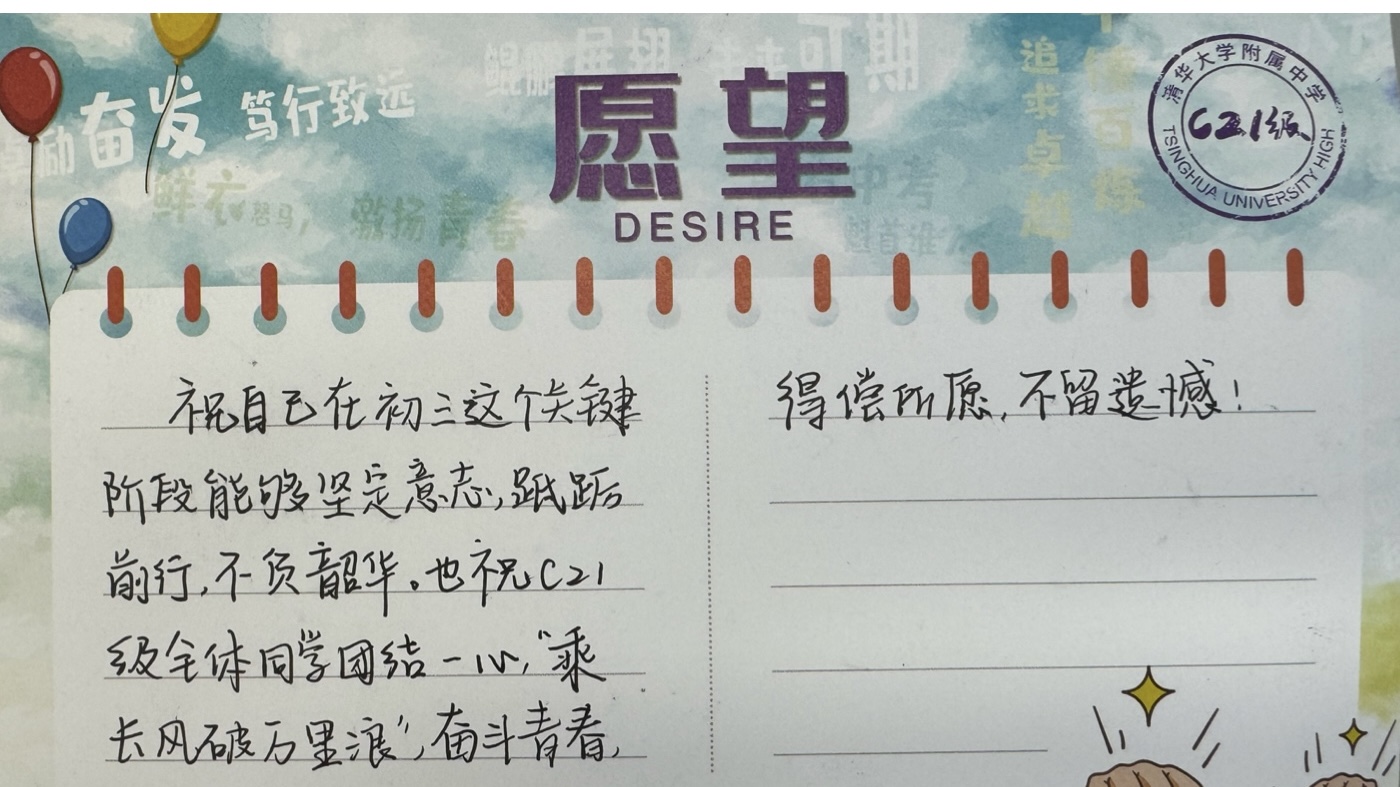 奋发
笃行致远
鲜衣怒马，
激扬青春
愿望
DESIRE
追求卓越
清华大学附属中学
C21级
TSINGHUA UNIVERSITY HIGH
祝自己在初三这个关键
阶段能够坚定意志,踽踽
前行,不负韶华。也祝C21
级全体同学团结一心,“乘
长风破万里浪”,奋斗青春,
得偿所愿,不留遗憾!